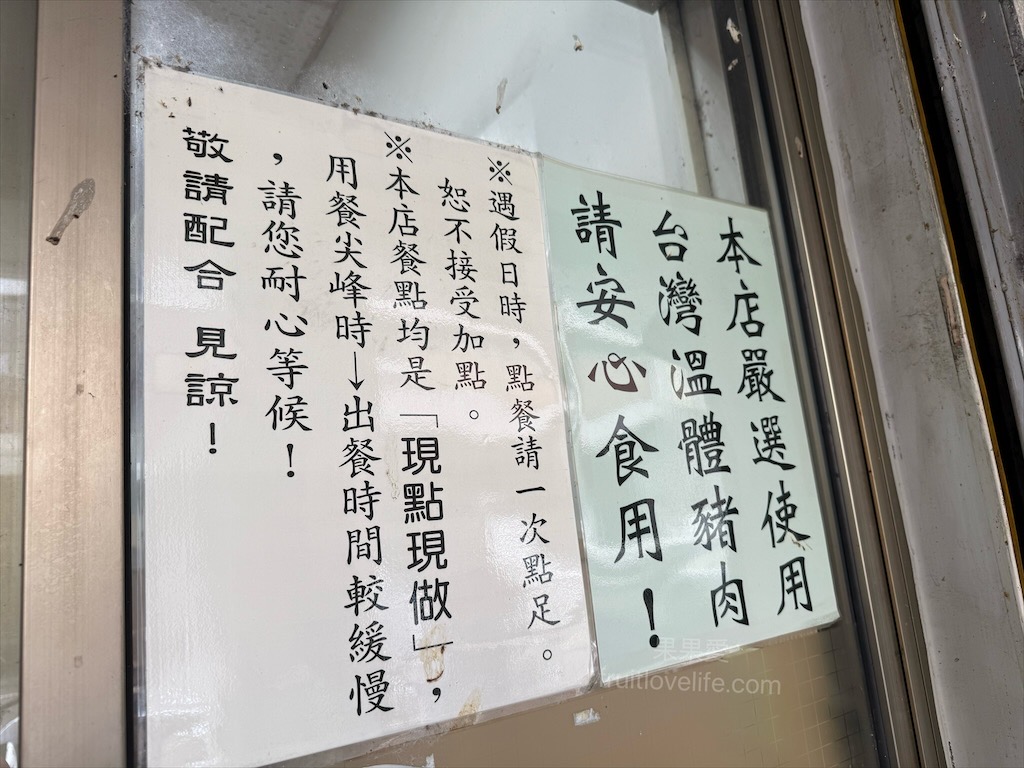 本店嚴選使用
台灣溫體豬肉
請安心食用！
※遇假日時，點餐請一次點足。
恕不接受加點。
※本店餐點均是「現點現做」，
用餐尖峰時→出餐時間較緩慢
，請您耐心等候！
敬請配合 見諒！
ruitlovelife.com